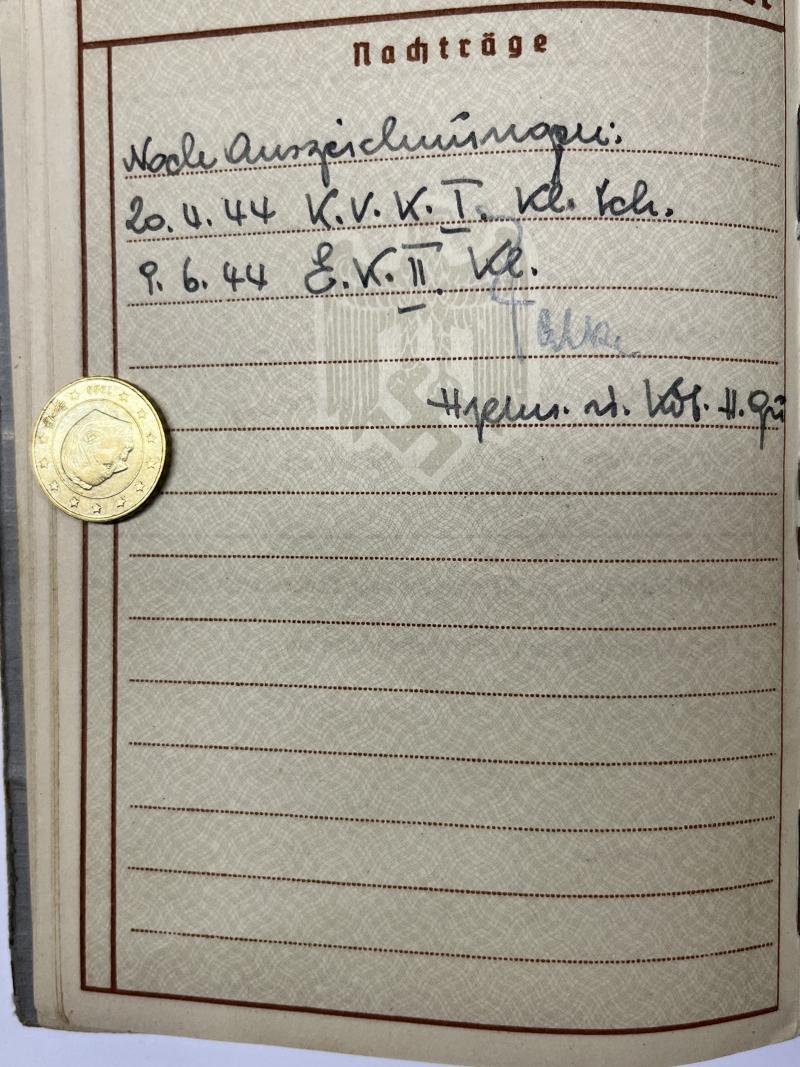 Nachträge
Noch Auszeichnungen:
20.4.44 K.V.K. I. Kl. Sch.
9.6.44 E.K. II. Kl.
Hptm. u. Kdt. H.Qu
1999